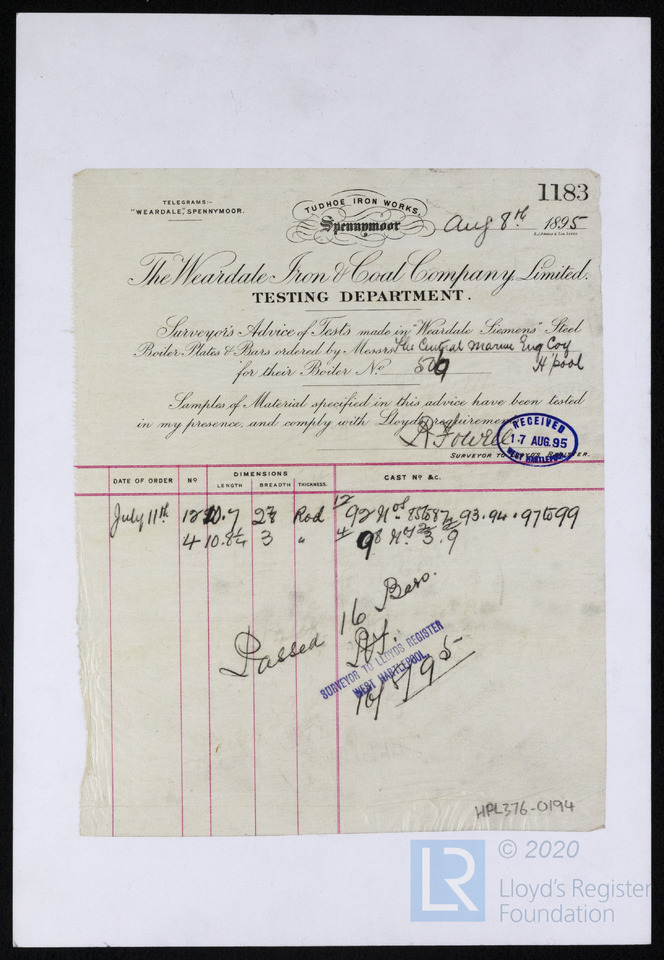 1183
TELEGRAMS:-
"WEARDALE," SPENNYMOOR.
TUDHOE IRON WORKS,
Spennymoor
Aug 8th 1895
The Weardale Iron & Coal Company, Limited.
TESTING DEPARTMENT.
Surveyor's Advice of Tests made in "Weardale Siemens" Steel
Boiler Plates & Bars ordered by Messrs The Central Marine Eng Coy
for their Boiler No 509 H'pool
Samples of Material specified in this advice have been tested
in my presence, and comply with Lloyds requirements
R Fowell
SURVEYOR TO LLOYD'S REGISTER.
RECEIVED
17 AUG. 95
WEST HARTLEPOOL
DATE OF ORDER No DIMENSIONS CAST No &C.
LENGTH BREADTH THICKNESS.
July 11th 12 10.7 Rod 12 92 Nos 85 to 87 93.94.97 to 99
4 10.8¼ 3 " 4 98
Passed 16 Bars.
SURVEYOR TO LLOYDS REGISTER
WEST HARTLEPOOL
HPL376-0194
LR
© 2020
Lloyd's Register
Foundation